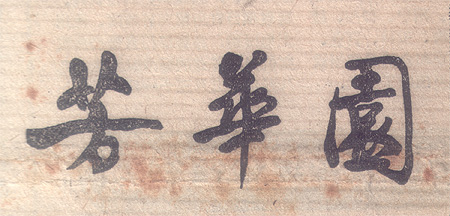 芳華園